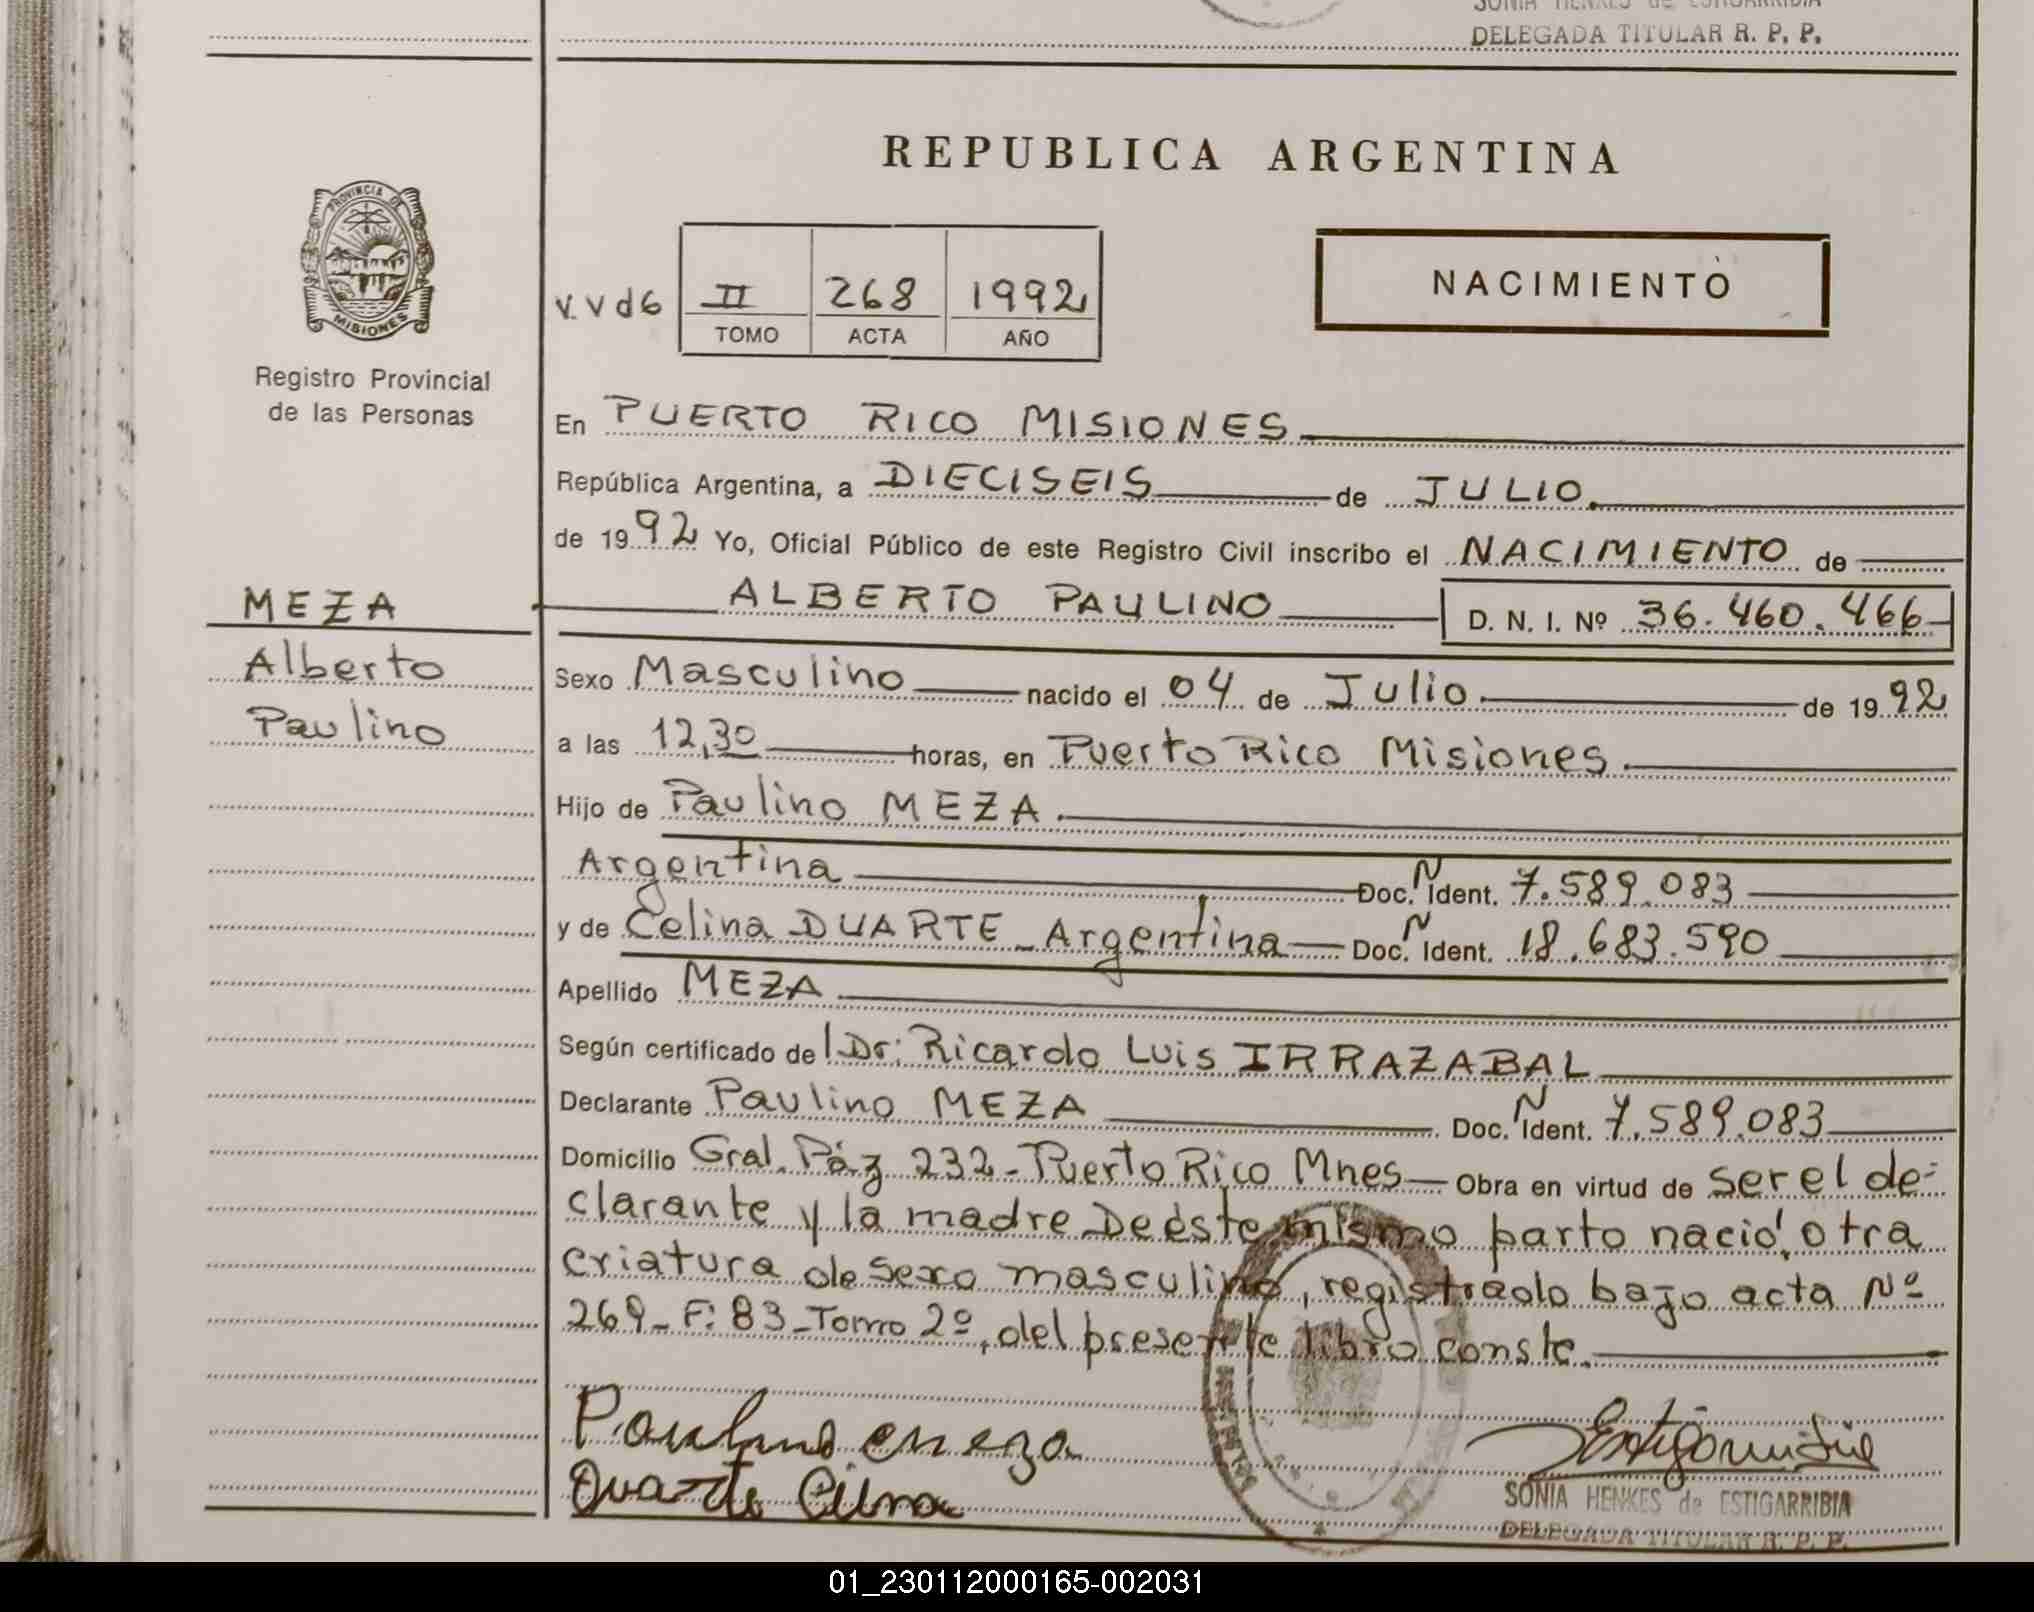 SONIA HENKES de ESTIGARRIBIA
DELEGADA TITULAR R. P. P.
REPUBLICA ARGENTINA
PROVINCIA DE
MISIONES
Registro Provincial
de las Personas
V.Vd6 II 268 1992
TOMO ACTA AÑO
NACIMIENTO
En PUERTO RICO MISIONES
República Argentina, a DIECISEIS de JULIO
de 1992 Yo, Oficial Público de este Registro Civil inscribo el NACIMIENTO de
MEZA
Alberto
Paulino
ALBERTO PAULINO D. N. I. Nº 36.460.466
Sexo Masculino nacido el 04 de Julio de 1992
a las 12,30 horas, en Puerto Rico Misiones
Hijo de Paulino MEZA
Argentina Doc. N Ident. 7.589.083
y de Celina DUARTE - Argentina Doc. N Ident. 18.683.590
Apellido MEZA
Según certificado del Dr: Ricardo Luis IRRAZABAL
Declarante Paulino MEZA Doc. N Ident. 7.589.083
Domicilio Gral. Páz 232 - Puerto Rico Mnes Obra en virtud de ser el de-
clarante y la madre De éste mismo parto nació otra
criatura de sexo masculino, registrado bajo acta Nº
269 - F: 83 - Tomo 2º, del presente libro conste.
Paulino Meza
Duarte Celina
SONIA HENKES de ESTIGARRIBIA
DELEGADA TITULAR R. P. P.
01_230112000165-002031